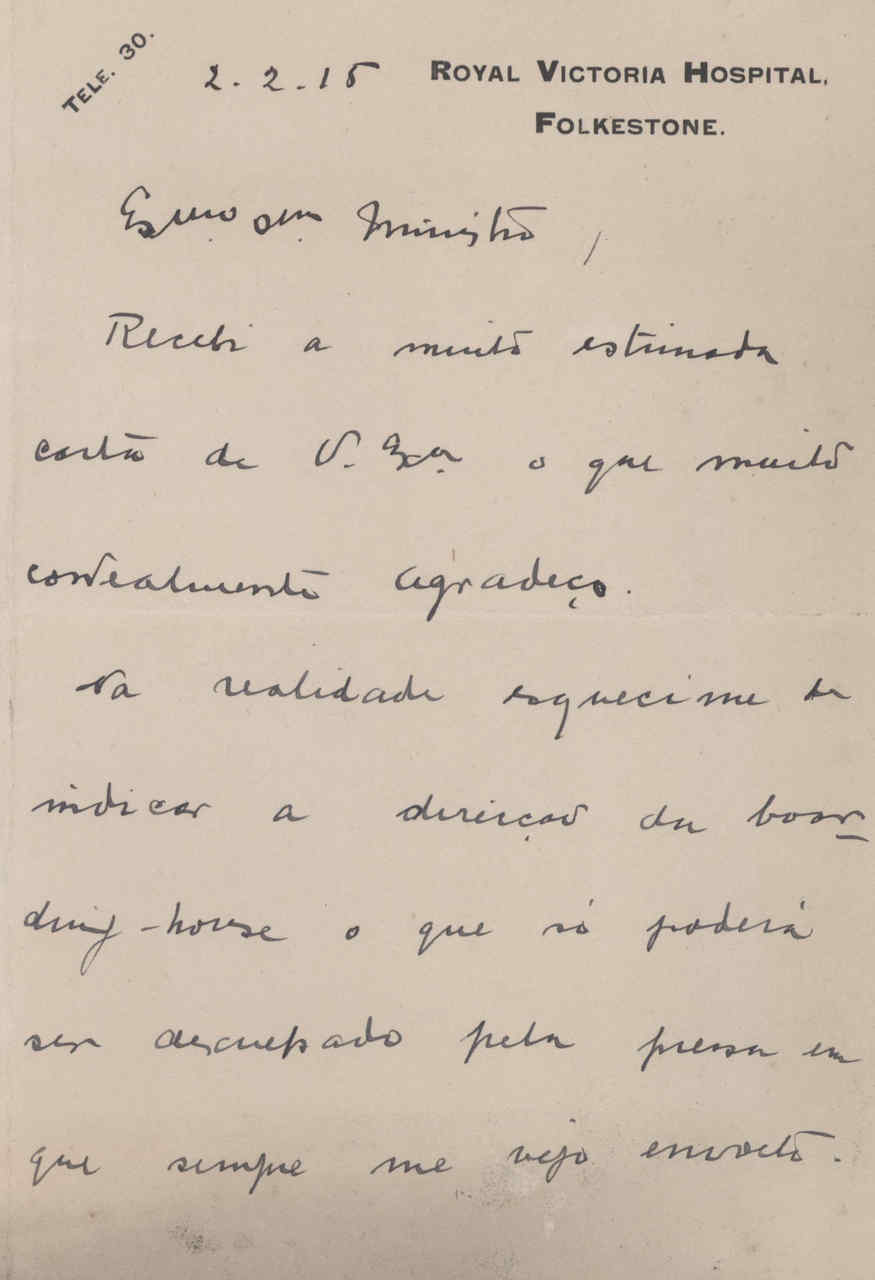 TELE. 30.
2.2.15 ROYAL VICTORIA HOSPITAL,
FOLKESTONE.
Exmo Snr Ministro,
Recebi a muito estimada
carta de V. Exa o que muito
cordealmente agradeço.
Na realidade esqueci me de
indicar a direição da boar-
ding-house o que só poderá
ser desculpado pela pressa em
que sempre me vejo envolto.